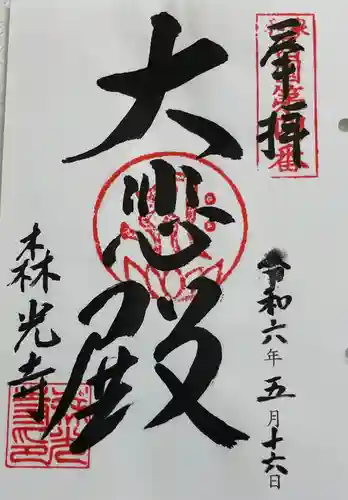 奉拝
大悲殿
令和六年五月十六日
森光寺